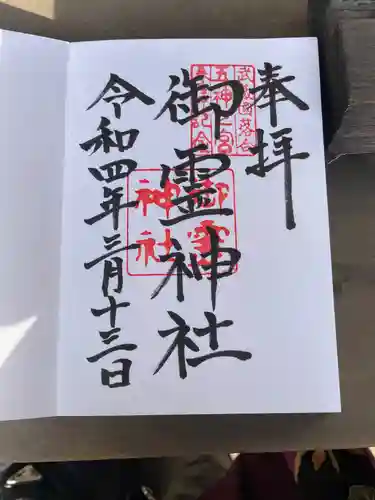 奉拝
武蔵国落合
御霊神社
御霊
神社
令和四年三月十三日